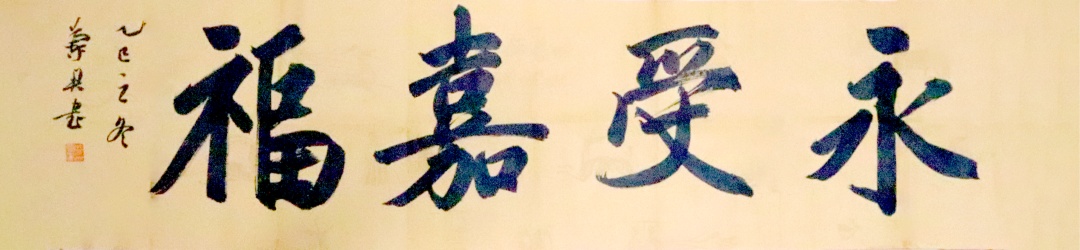 永受嘉福
乙巳之冬
書